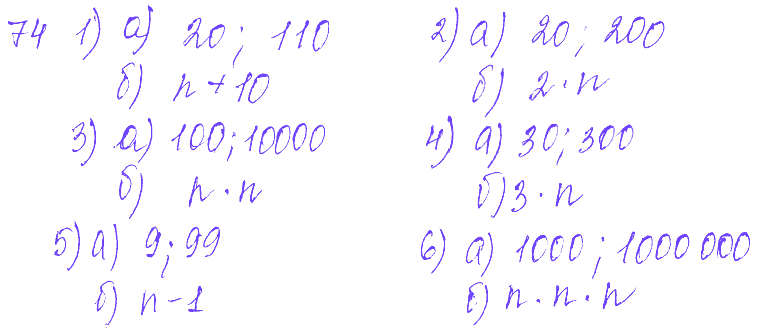 74 1) а) 20; 110 2) а) 20; 200
б) n + 10 б) 2 · n
3) а) 100; 10000 4) а) 30; 300
б) n · n б) 3 · n
5) а) 9; 99 6) а) 1000; 1000 000
б) n - 1 б) n · n · n